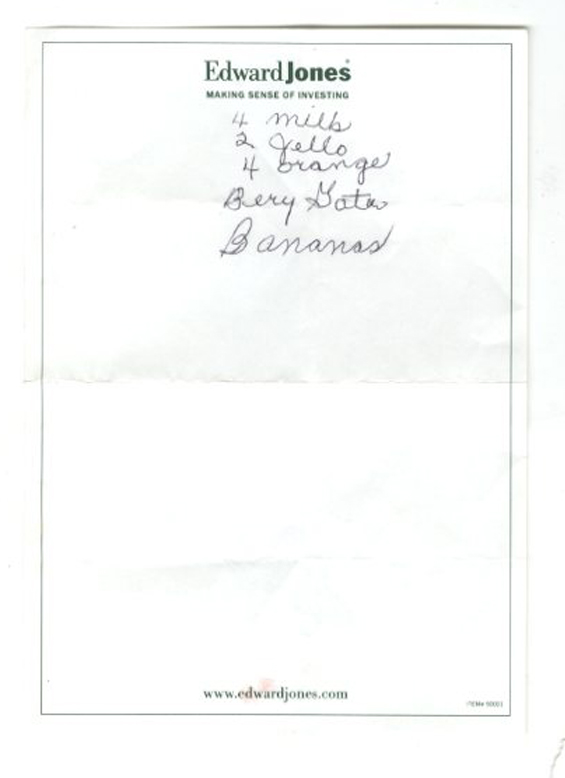 EdwardJones®
MAKING SENSE OF INVESTING
4 milk
2 Jello
4 orange
Bery
Bananas
www.edwardjones.com